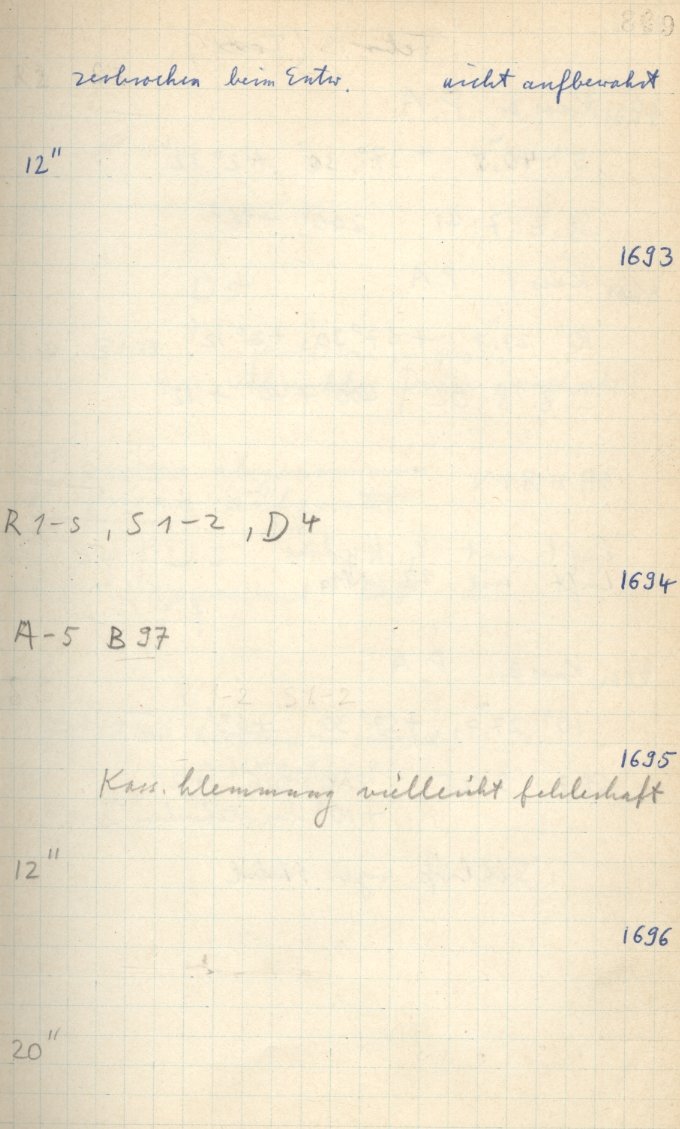 zerbrochen beim Entw. nicht aufbewahrt
12"
1693
R 1-5, S 1-2, D 4
1694
A-5 B 97
1695
Kass. klemmung vielleicht fehlerhaft
12"
1696
20"